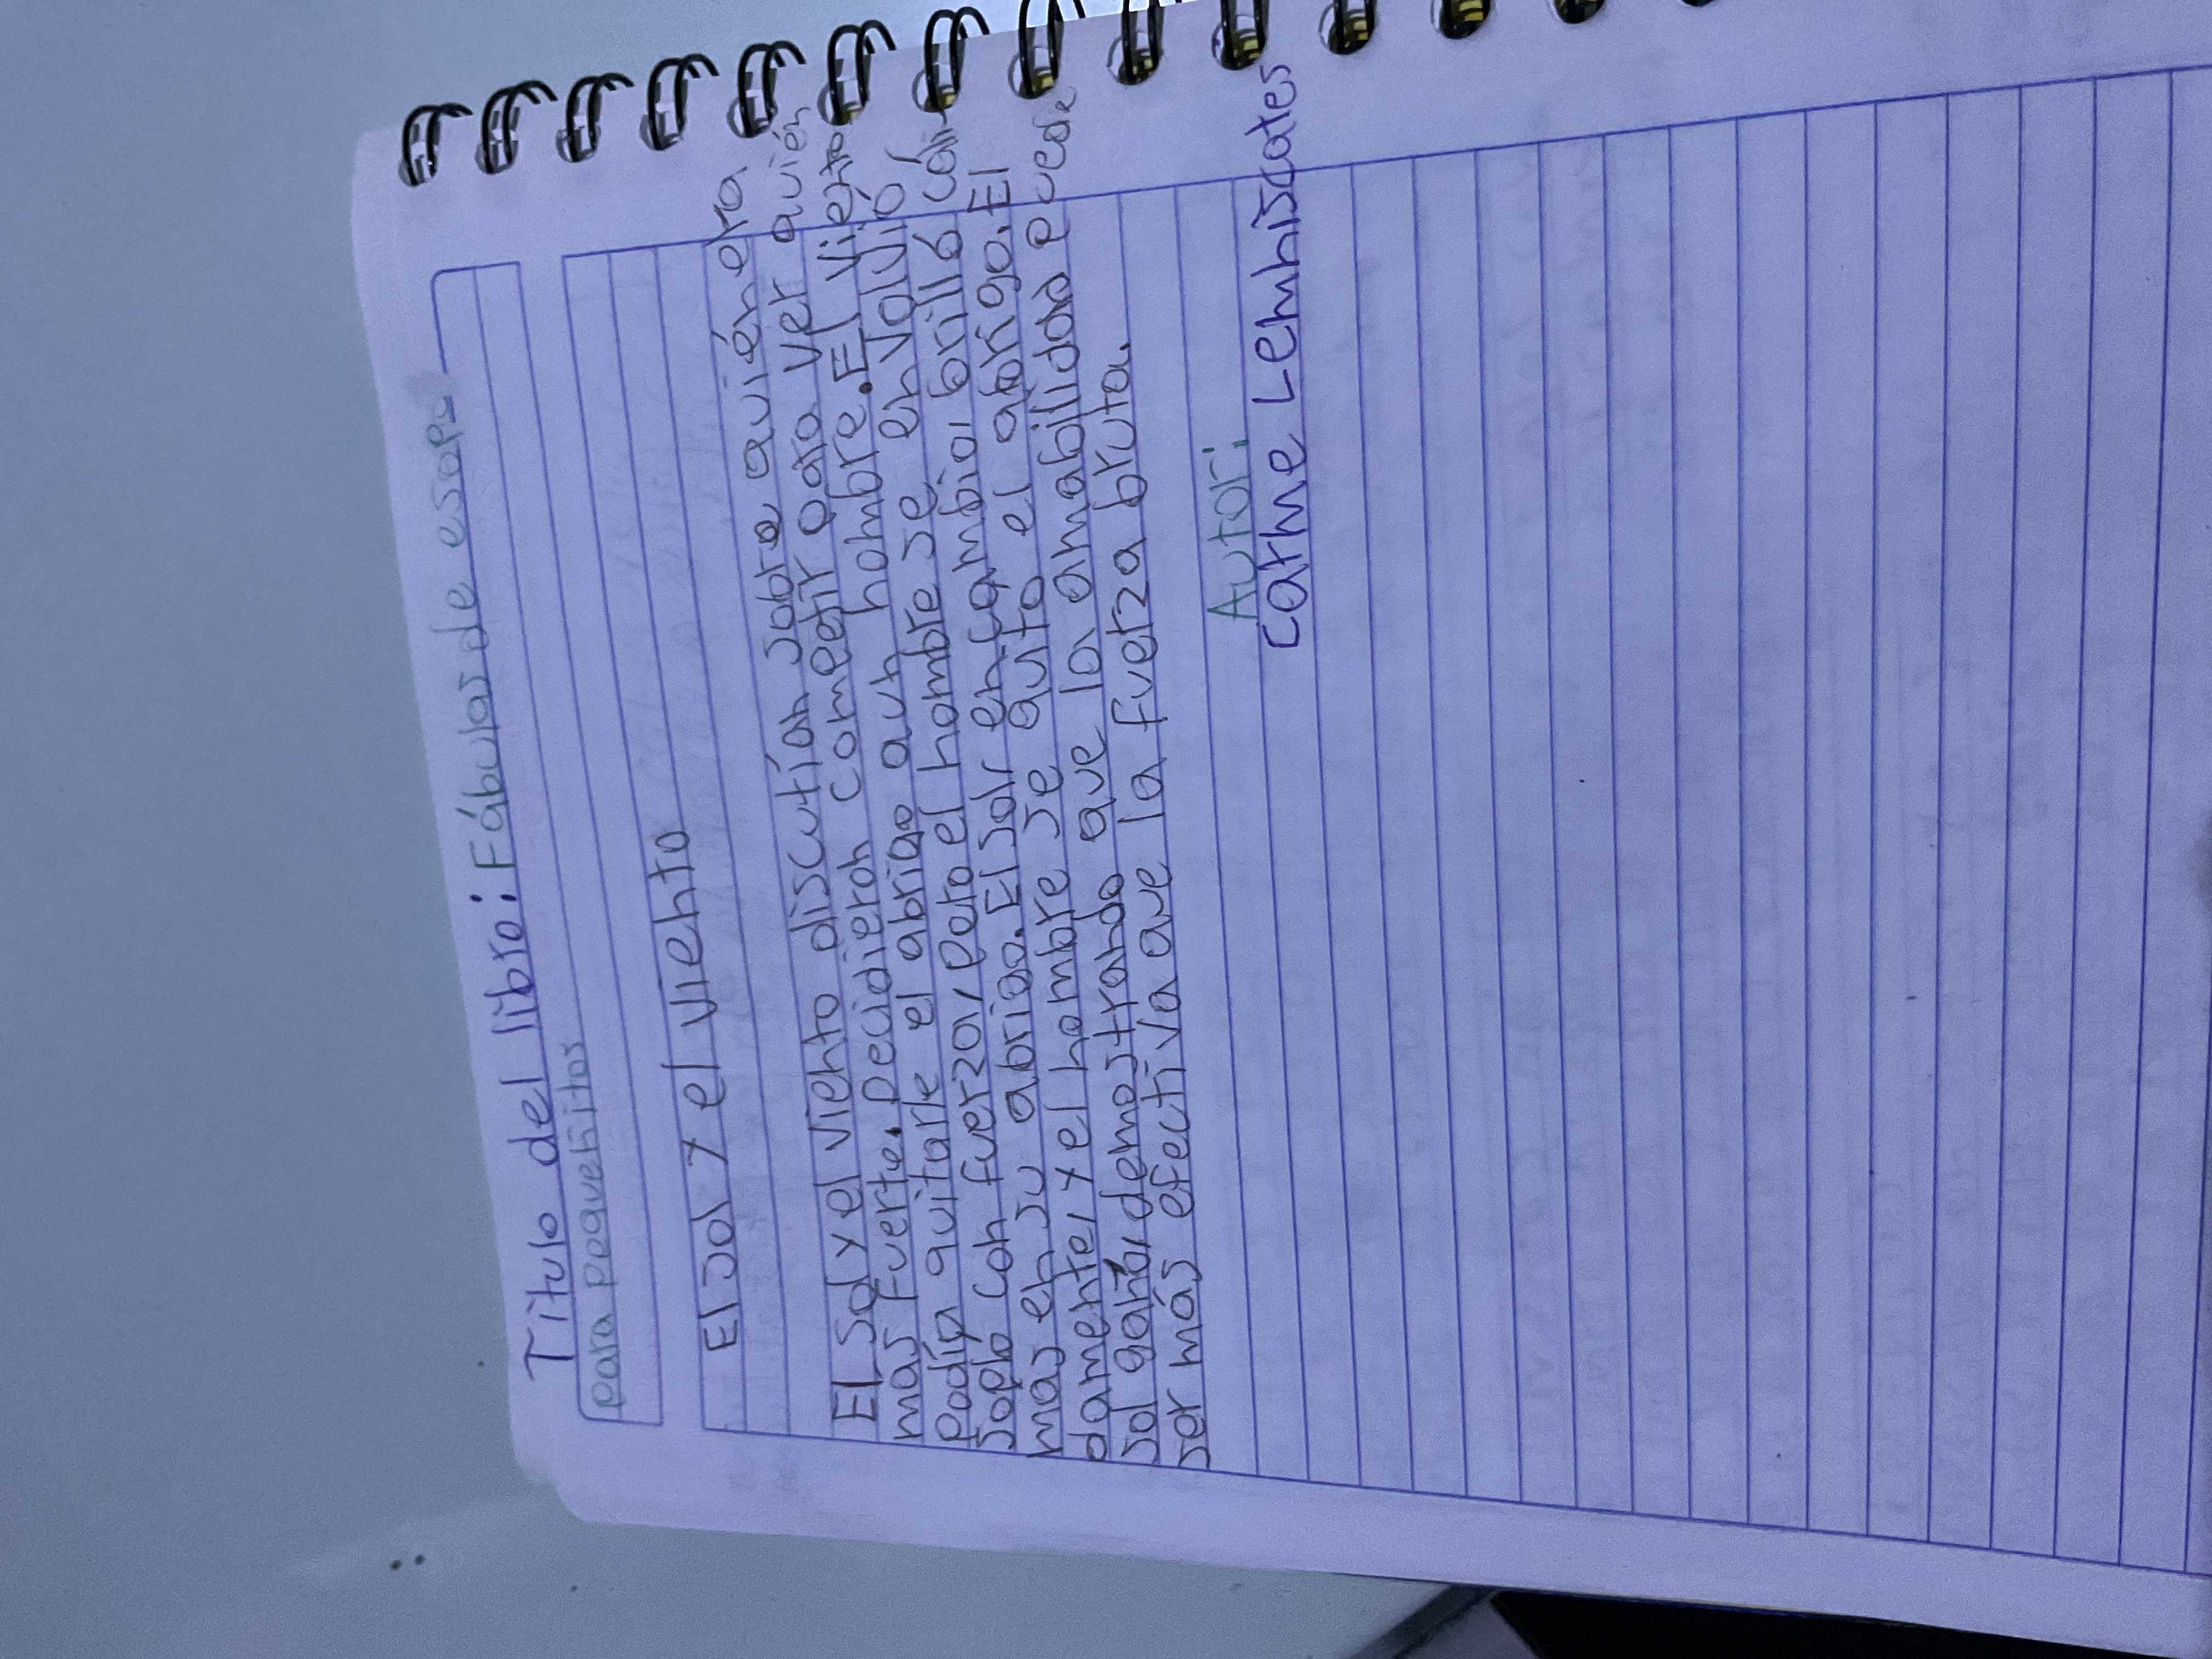 Titulo del libro: Fábulas de esopo
para pequeñitos
El sol y el viento
El sol y el viento discutían sobre quién era
mas fuerte. Decidieron competir para ver quién
podía quitarle el abrigo aun hombre. El viento
soplo con fuerza, pero el hombre se envolvió
mas en su abrigo. El sol, en cambio, brilló cáli-
damente, y el hombre se quito el abrigo. El
sol ganó, demostrando que la amabilidad puede
ser más efectiva que la fuerza bruta.
Autor:
Carme Lemniscates